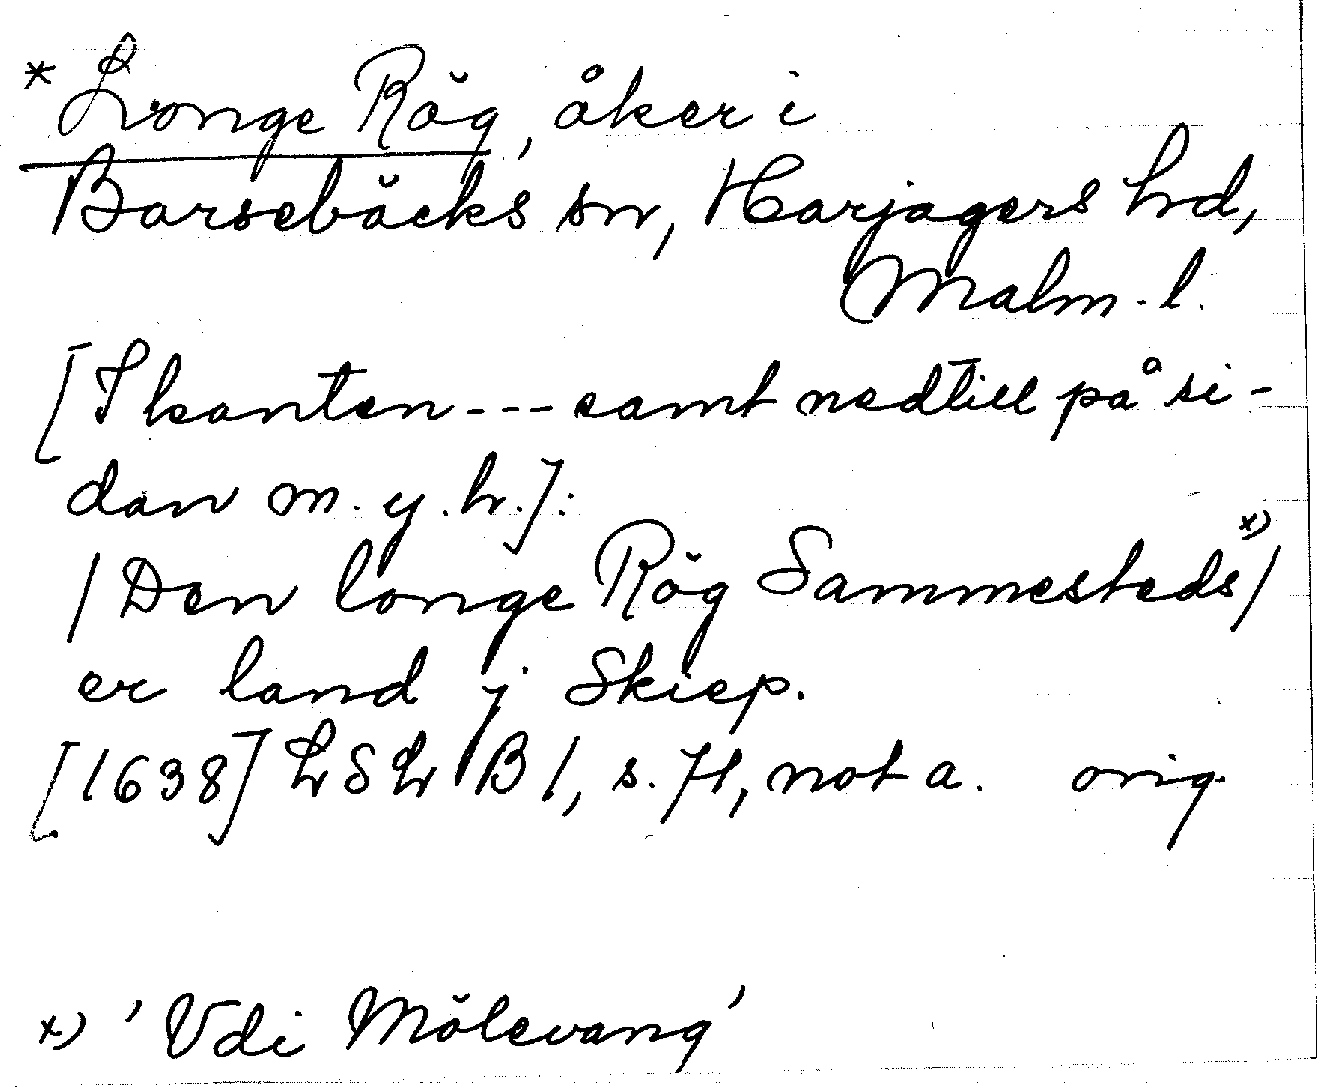 *Longe Rög, åker i
Barsebäcks sn, Harjagers hd,
Malm-l.
[I kanten --- samt nedtill på si-
dan m.y.h.]:
/Den longe Rög Sammesteds x)/
er land j Skiep.
[1638] LSL B1, s. 71, not a. orig
x) 'Vdi Mölevang'